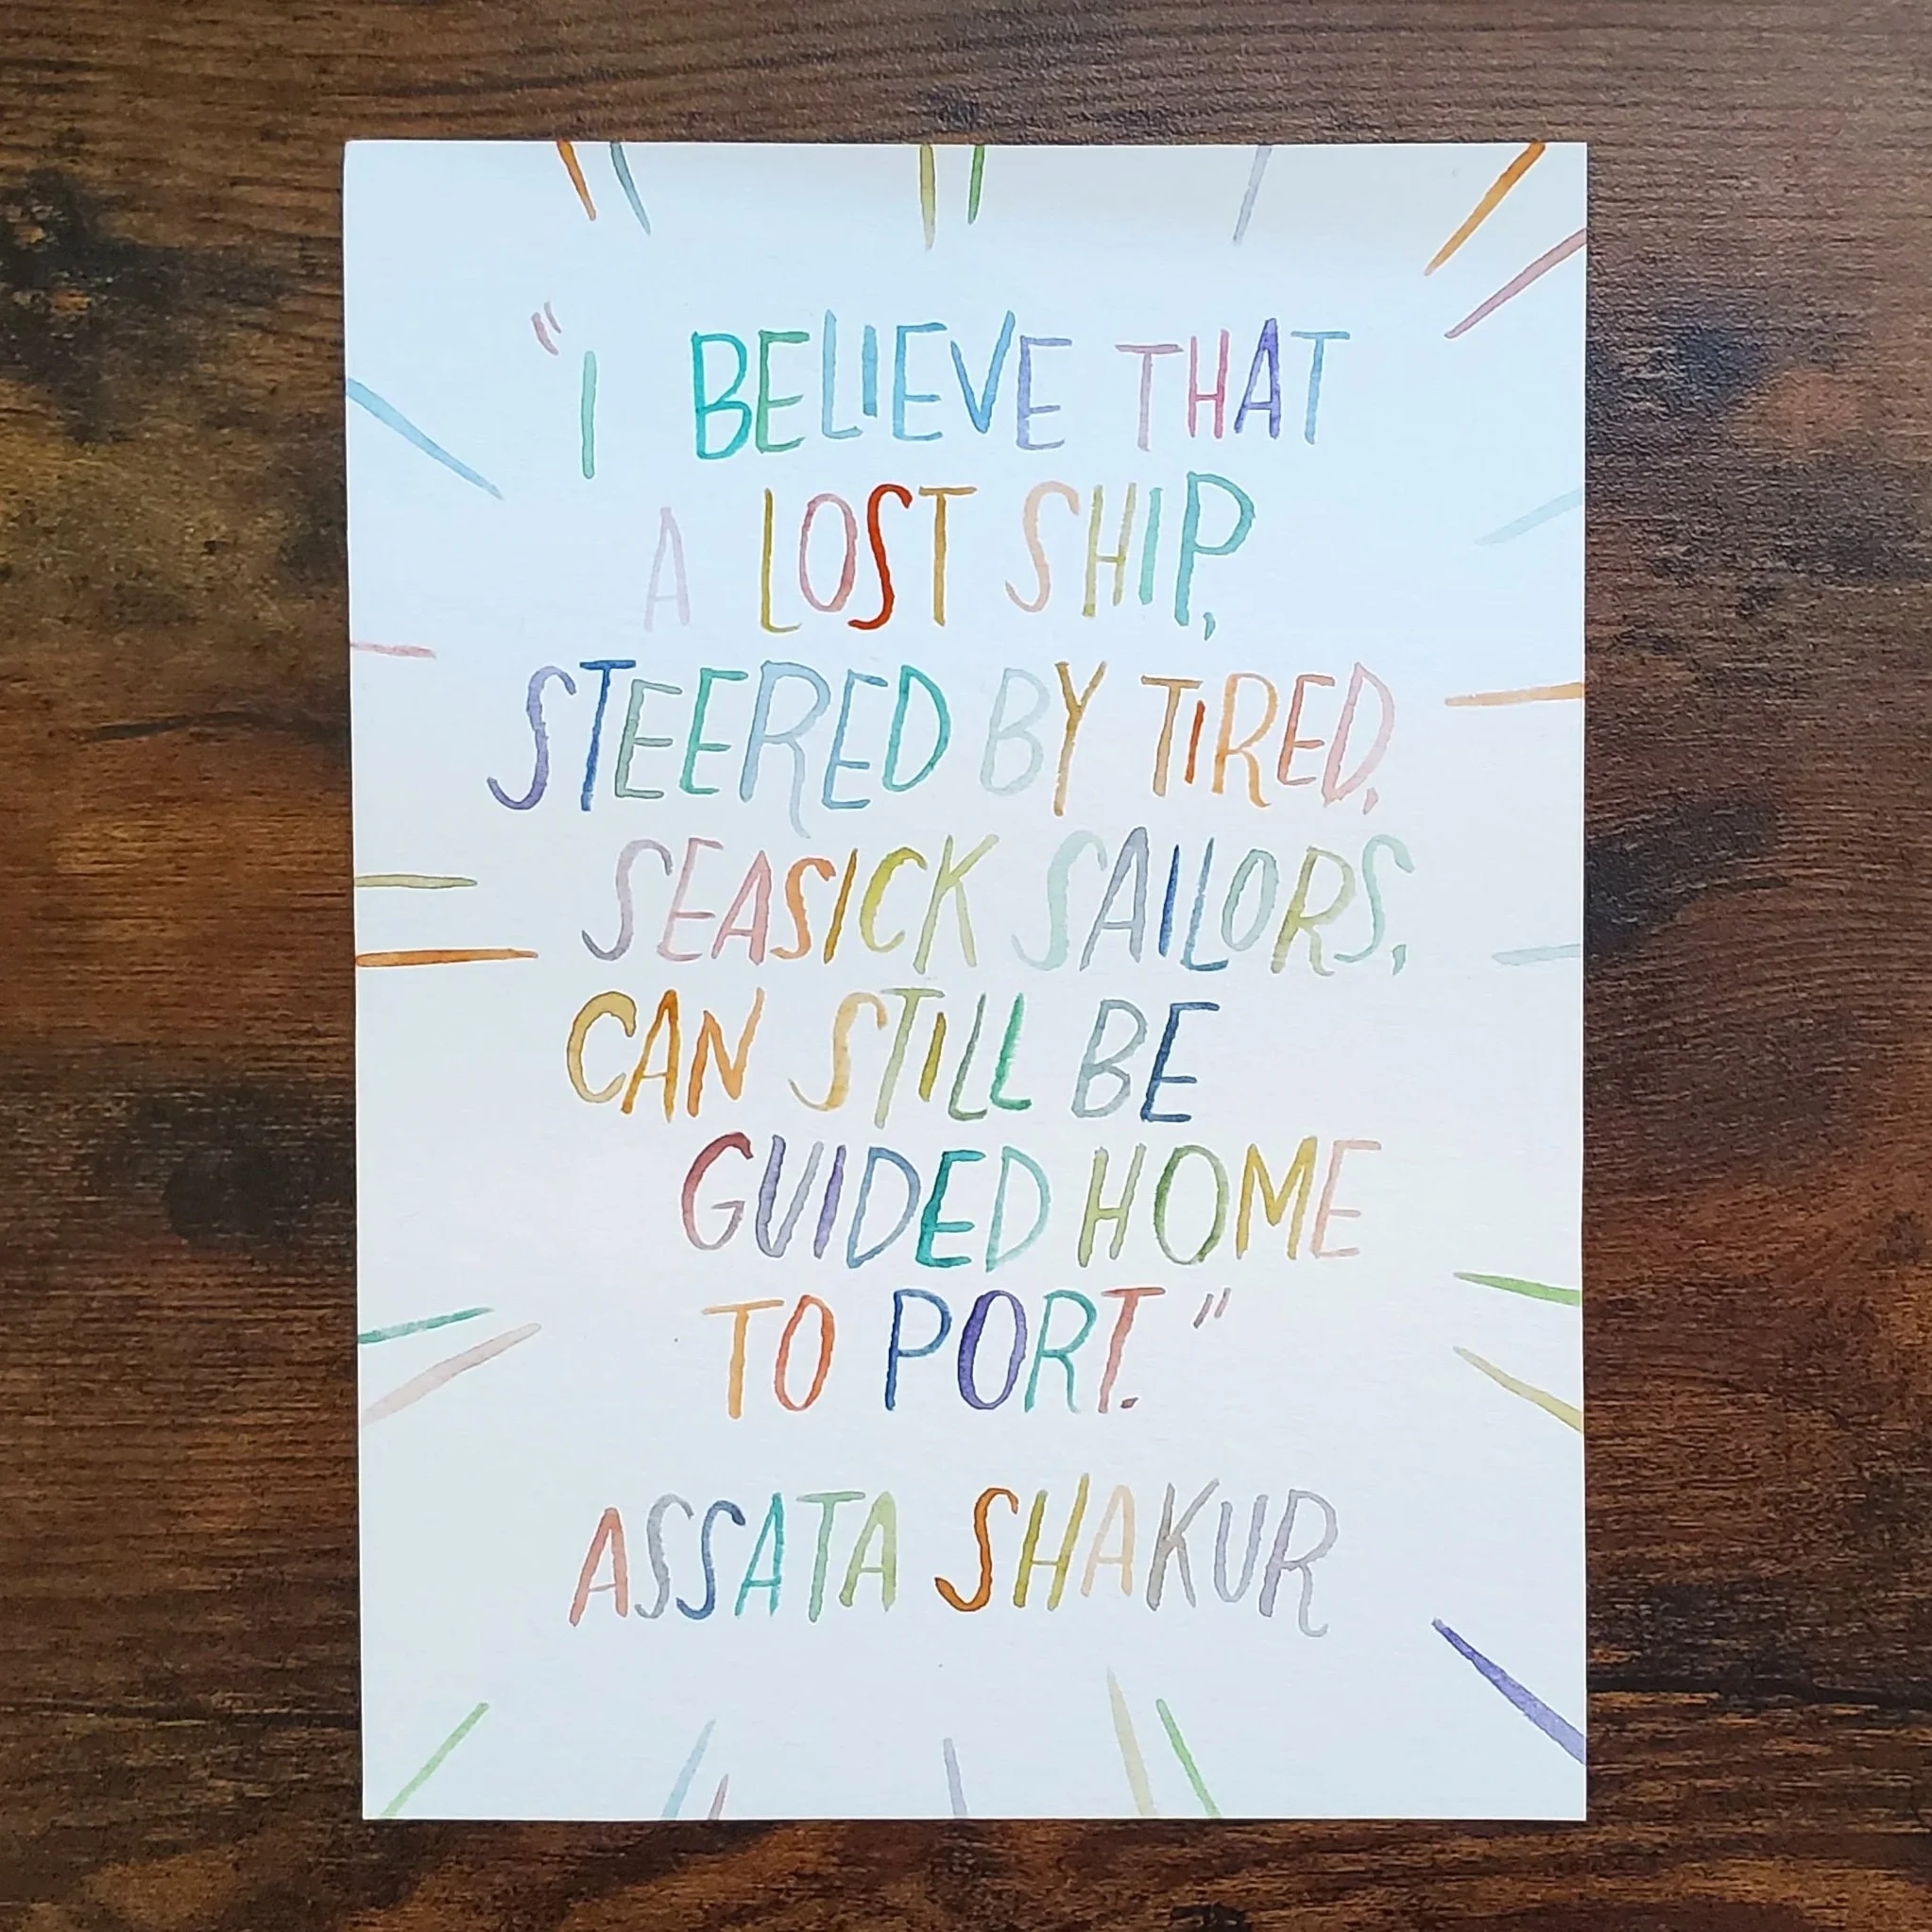 "I BELIEVE THAT
A LOST SHIP,
STEERED BY TIRED,
SEASICK SAILORS,
CAN STILL BE
GUIDED HOME
TO PORT."
ASSATA SHAKUR